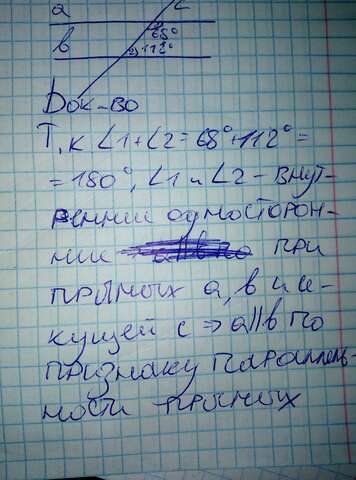 a c
1) 68°
b 2) 112°
Док-во
Т.к ∠1+∠2=68°+112°=
=180°, ∠1 и ∠2 - внут-
ренние односторон-
ние при
прямых a, b и се-
кущей c ⇒ a||b по
признаку параллель-
ности прямых